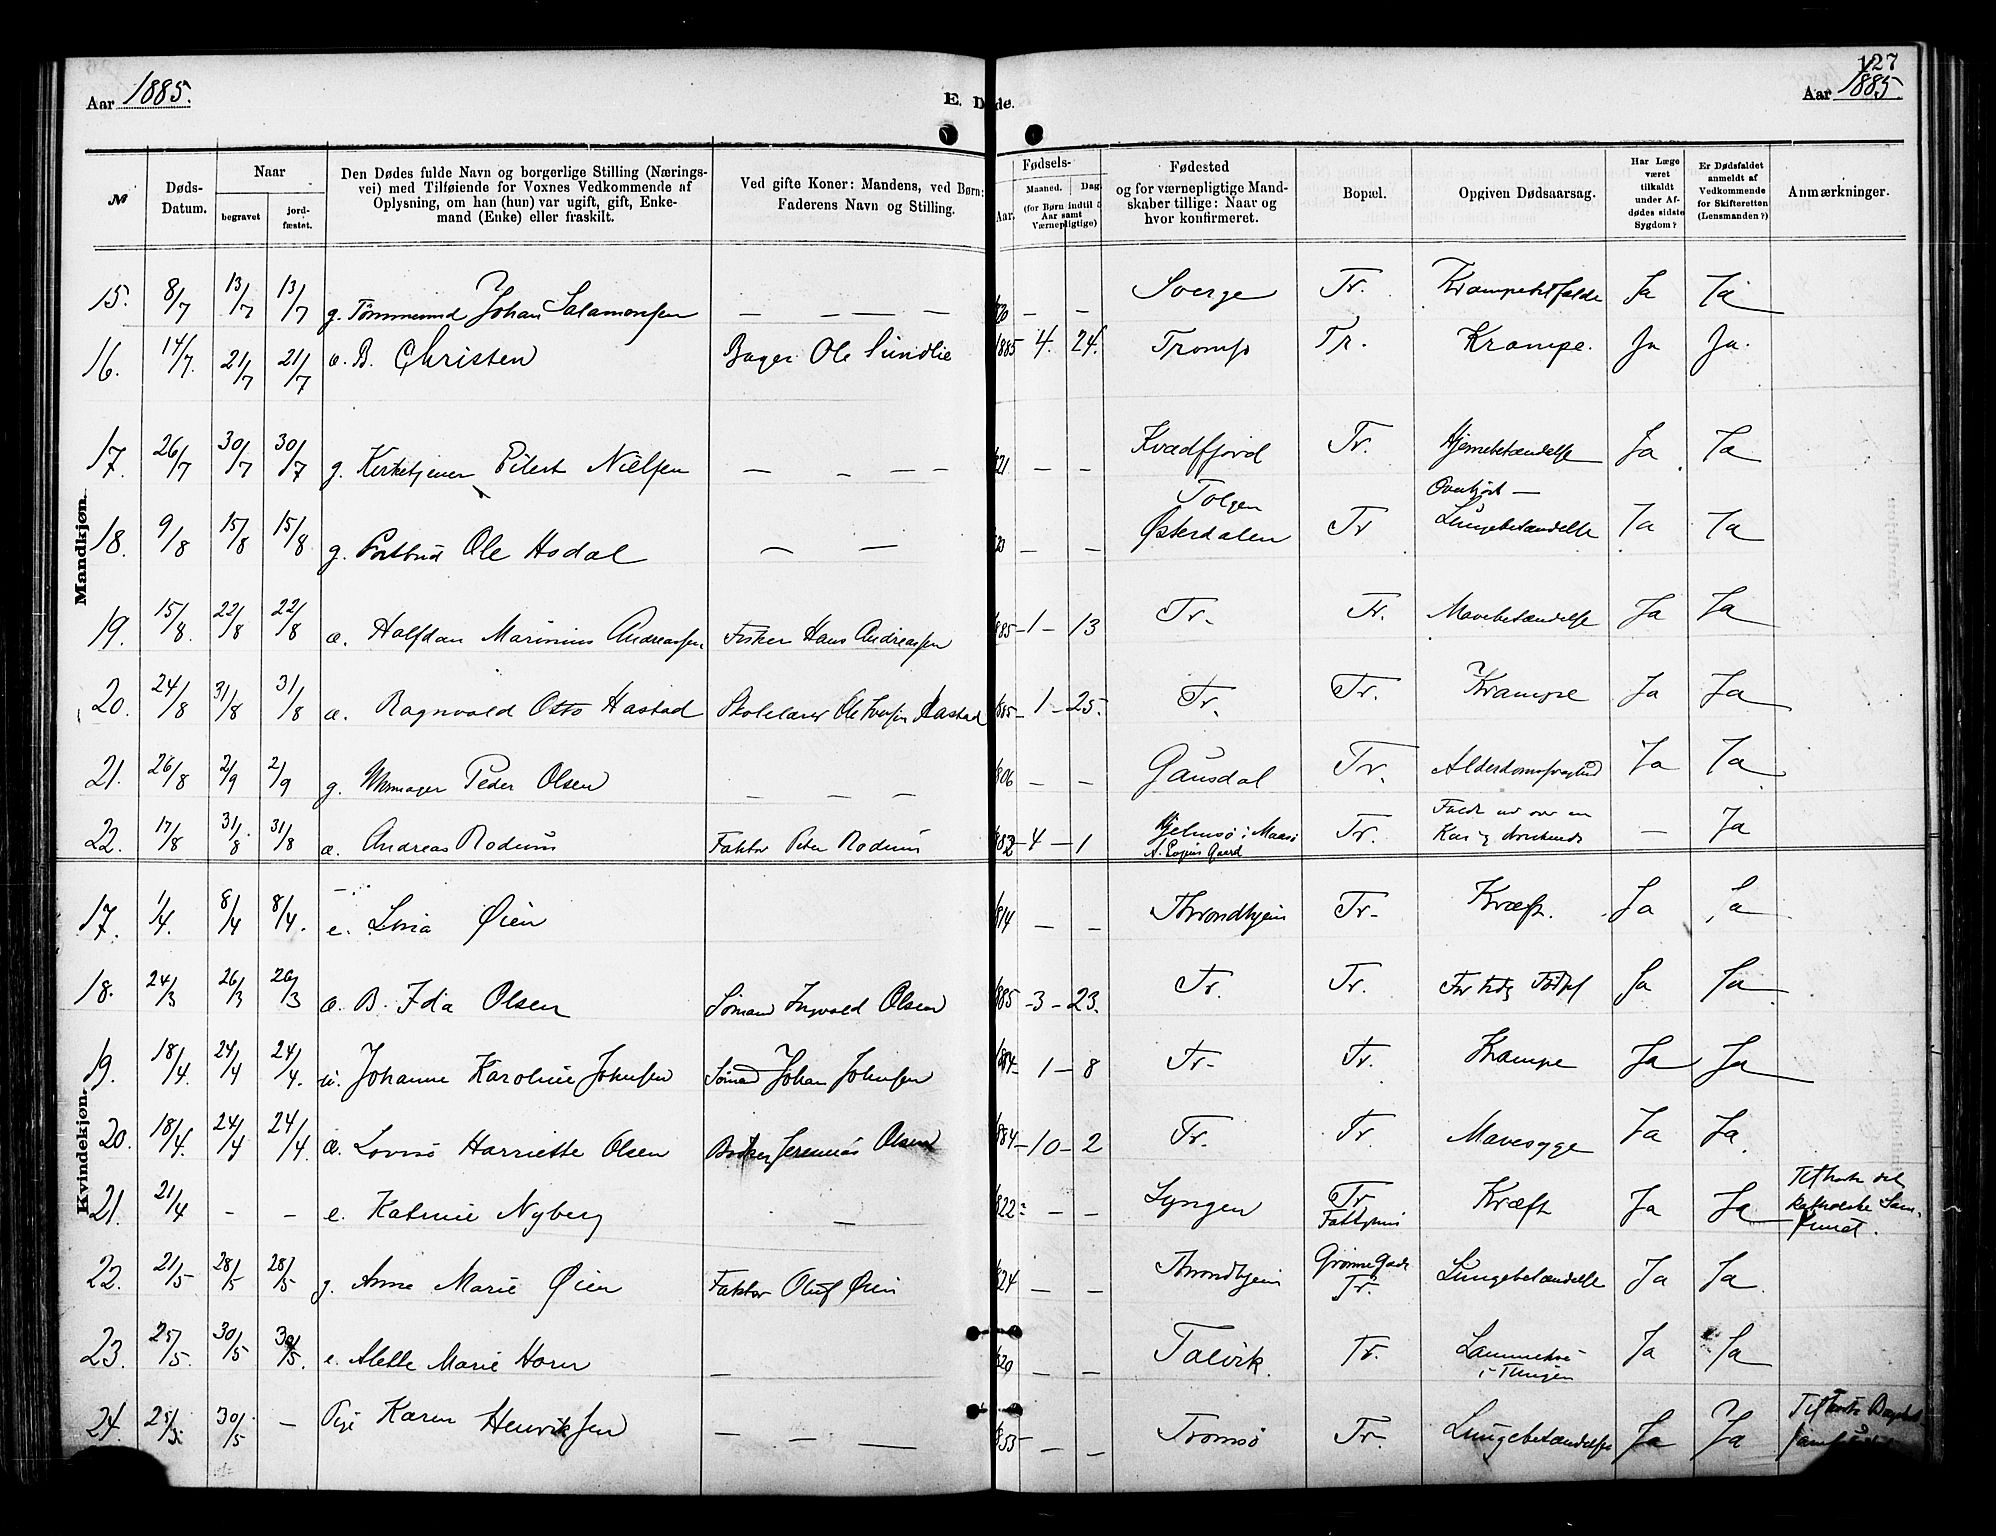 127
Aar 1885.
E. Døde.
Aar 1885.
№
Døds-Datum.
Naar
begravet
jord-fæstet.
Den Dødes fulde Navn og borgerlige Stilling (Nærings-
vei) med Tilføiende for Voxnes Vedkommende af
Oplysning, om han (hun) var ugift, gift, Enke-
mand (Enke) eller fraskilt.
Ved gifte Koner: Mandens, ved Børn:
Faderens Navn og Stilling.
Fødsels-
Aar.
Maaned.
Dag
(for Børn indtil
Aar samt
Værnepligtige)
Fødested
og for værnepligtige Mand-
skaber tillige: Naar og
hvor konfirmeret.
Bopæl.
Opgiven Dødsaarsag.
Har Læge
været
tilkaldt
under Af-
dødes sidste
Sygdom?
Er Dødsfaldet
anmeldt af
Vedkommende
for Skifteretten
(Lensmanden?)
Anmærkninger.
Mandkjøn.
15. 8/7 13/7 13/7 g. Tømmermd Johan Salamonsen — — — — — — Sverge Tr. Ja Ja
16. 14/7 21/7 21/7 æ. B. Christen Bager Ole Sundlie 1885 4. 24. Tromsø Tr. Krampe. Ja Ja.
17. 26/7 30/7 30/7 g. Kirketjener Eilert Nielsen — — — — — — Kvædfjord Tr. Hjernebetændelse Ja Ja
18. 9/8 15/8 15/8 g. Postbud Ole Hodal — — — — Tolgen Østerdalen Tr Lungebetændelse Ja Ja
19. 15/8 22/8 22/8 æ. Halfdan Marinius Andreassen Fisker Hans Andreassen 885 – 1 – 13 Tr. Tr. Mavebetændelse Ja Ja
20. 24/8 31/8 31/8 æ. Ragnvald Otto Hastad Skolelærer Ole Iversen Hastad 885 – 1 – 25. Tr. Tr. Krampe Ja Ja
21. 26/8 2/9 2/9 g. Peder Olsen — — — 806 — — Gausdal Tr. Ja Ja
22. 17/8 31/8 31/8 æ. Andreas Rodum Faktor Peter Rodum 882 – 4 – 1 Hjelmsø i Maasø Tr. Faldt ud over en Kai og druknede — Ja
Kvindekjøn.
17. 1/4. 8/4 8/4. e. Lina Øien 814 — — Throndhjem Tr. Kræft. Ja Ja
18. 24/3 26/3 26/3 æ. B. Ida Olsen Sømand Ingvald Olsen 885 – 3 – 23. Tr. Tr. For tidlig Fødsel Ja Ja
19. 18/4. 24/4 24/4. æ. Johanne Karoline Johnsen Sømand Johan Johnsen 884 – 1 – 8 Tr. Tr. Krampe Ja Ja
20. 18/4. 24/4 24/4. æ. Lovise Harriette Olsen Jeremias Olsen 884 – 10 – 2 Tr. Tr. Mavesyge Ja Ja.
21. 21/4 – – e. Katrine Nyberg — 822 – — Lyngen Tr. Fattighus Kræft Ja Ja Tilhørte det katholske Samfund.
22. 21/5 28/5 28/5 g. Anne Marie Øien Faktor Oluf Øien 824 — — Throndhjem Grønne Gade Tr. Lungebetændelse Ja Ja
23. 25/5. 30/5 30/5. e. Alette Marie Horn — 820 — — Talvik. Tr. Lammelse i Tungen Ja Ja
24. 25/5 30/5 — Pige Karen Henriksen — — — 853 — — Tromsø Tr. Lungebetændelse Ja Ja Tilhørte